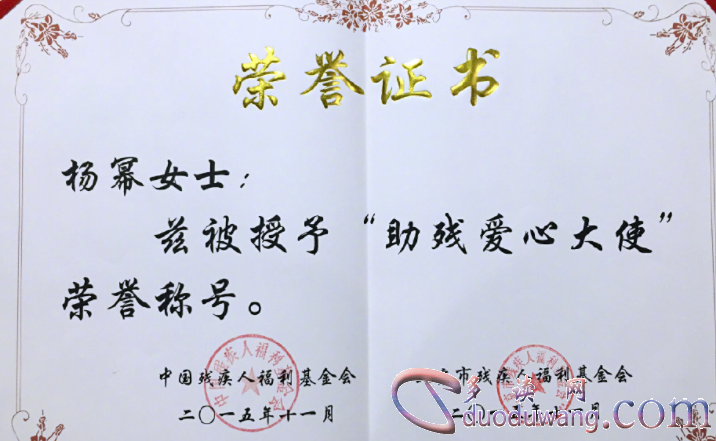 荣誉证书
杨幂女士：
兹被授予“助残爱心大使”
荣誉称号。
中国残疾人福利基金会
市残疾人福利基金会
二〇一五年十一月
二〇一五年十一月
中国残疾人福利基金会
多读网
duoduwang.com